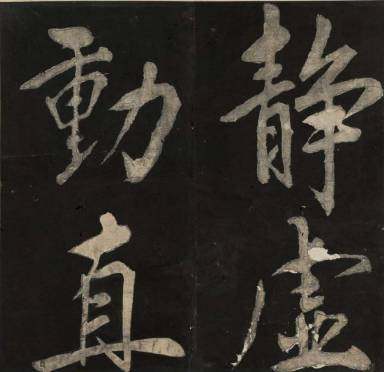 静虚
動直